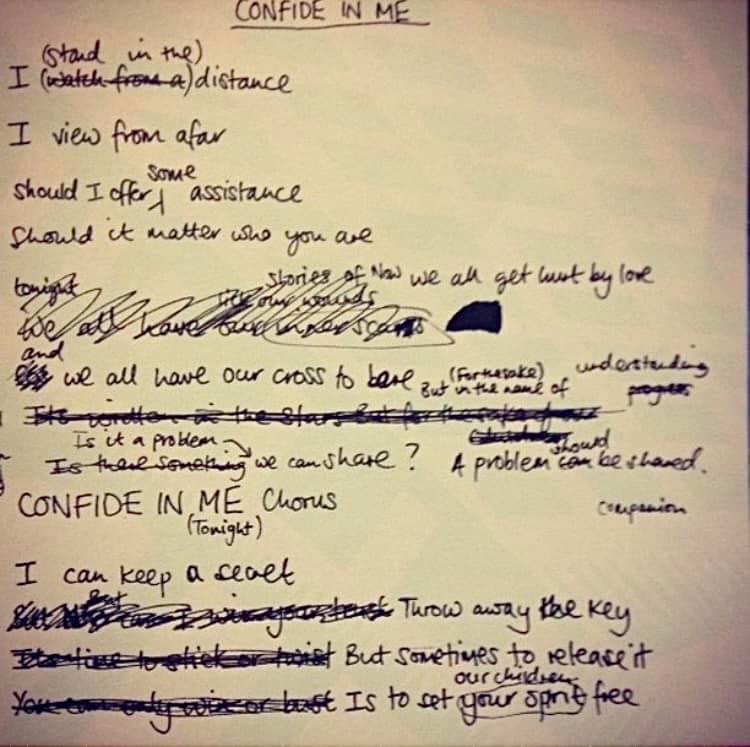 CONFIDE IN ME
(stand in the)
I (watch from a) distance
I view from afar
some
should I offer assistance
should it matter who you are
tonight
stories of Now we all get hurt by love
lick our wounds
We all have our inner scars
and
we all have our cross to bare (For the sake) understanding
But in the name of progress
Its written in the stars But for the sake of
Is it a problem
Is there something we can share? A problem can be shared.
should
CONFIDE IN ME Chorus companion
(Tonight)
I can keep a secret
But
Throw away the key
Its time to stick or twist But sometimes to release it
our children
You can only win or bust Is to set your sprit free